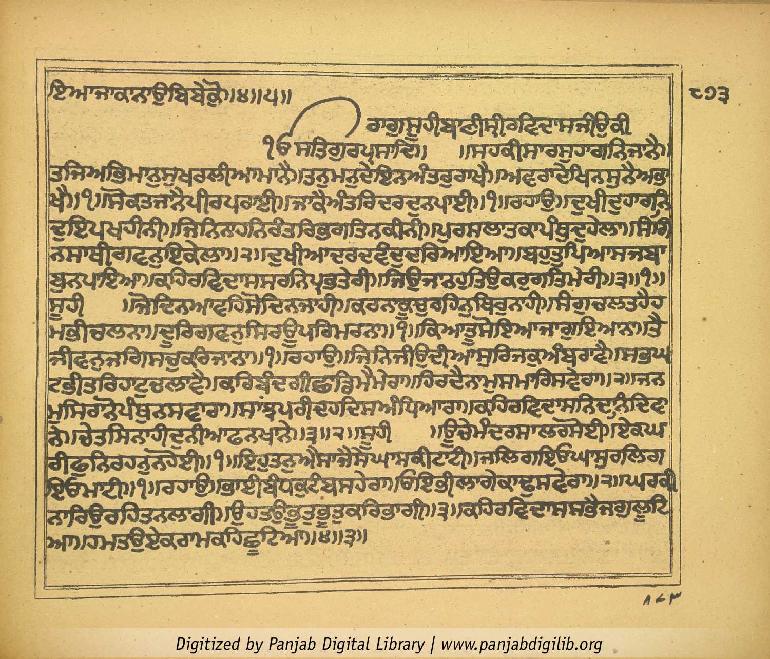 ਇਆਜਾਕਾਨਾਉਬਿਬੇਕੋ॥੪॥੫॥
੮੭੩
ਰਾਗੁਸੂਹੀਬਾਣੀਸ੍ਰੀਰਵਿਦਾਸਜੀਉਕੀ
ੴਸਤਿਗੁਰਪ੍ਰਸਾਦਿ॥ ॥ਸਹਕੀਸਾਰਸੁਹਾਗਨਿਜਾਨੈ॥
ਤਜਿਅਭਿਮਾਨੁਸੁਖਰਲੀਆਮਾਨੈ॥ਤਨੁਮਨੁਦੇਇਨਅੰਤਰੁਰਾਖੈ॥ਅਵਰਾਦੇਖਿਨਸੁਨੈਅਭਾ
ਖੈ॥੧॥ਸੋਕਤਜਾਨੈਪੀਰਪਰਾਈ॥ਜਾਕੈਅੰਤਰਿਦਰਦੁਨਪਾਈ॥੧॥ਰਹਾਉ॥ਦੁਖੀਦੁਹਾਗਨਿ
ਦੁਇਪਖਹੀਨੀ॥ਜਿਨਿਨਾਹਨਿਰੰਤਰਿਭਗਤਿਨਕੀਨੀ॥ਪੁਰਸਲਾਤਕਾਪੰਥੁਦੁਹੇਲਾ॥ਸੰਗਿ
ਨਸਾਥੀਗਵਨੁਇਕੇਲਾ॥੨॥ਦੁਖੀਆਦਰਦਵੰਦੁਦਰਿਆਇਆ॥ਬਹੁਤੁਪਿਆਸਜਬਾ
ਬੁਨਪਾਇਆ॥ਕਹਿਰਵਿਦਾਸਸਰਨਿਪ੍ਰਭਤੇਰੀ॥ਜਿਉਜਾਨਹੁਤਿਉਕਰੁਗਤਿਮੇਰੀ॥੩॥੧॥
ਸੂਹੀ ॥ਜੋਦਿਨਆਵਹਿਸੋਦਿਨਜਾਹੀ॥ਕਰਨਾਕੂਚੁਰਹਨੁਥਿਰੁਨਾਹੀ॥ਸੰਗੁਚਲਤਹੈਹ
ਮਭੀਚਲਨਾ॥ਦੂਰਿਗਵਨੁਸਿਰਊਪਰਿਮਰਨਾ॥੧॥ਕਿਆਤੂਸੋਇਆਜਾਗੁਇਆਨਾ॥ਤੈ
ਜੀਵਨੁਜਗਿਸਚੁਕਰਿਜਾਨਾ॥੧॥ਰਹਾਉ॥ਜਿਨਿਜੀਉਦੀਆਸੁਰਿਜਕੁਅੰਬਰਾਵੈ॥ਸਭਘ
ਟਭੀਤਰਿਹਾਟੁਚਲਾਵੈ॥ਕਰਿਬੰਦਗੀਛਾਡਿਮੈਮੇਰਾ॥ਹਿਰਦੈਨਾਮੁਸਮਾਰਿਸਵੇਰਾ॥੨॥ਜਨ
ਮੁਸਿਰਾਨੋਪੰਥੁਨਸਵਾਰਾ॥ਸਾਂਝਪਰੀਦਹਦਿਸਅੰਧਿਆਰਾ॥ਕਹਿਰਵਿਦਾਸਨਿਦਾਨਿਦਿਵਾ
ਨੇ॥ਚੇਤਸਿਨਾਹੀਦੁਨੀਆਫਨਖਾਨੇ॥੩॥੨॥ਸੂਹੀ ॥ਊਚੇਮੰਦਰਸਾਲਰਸੋਈ॥ਇਕਘ
ਰੀਫੁਨਿਰਹਨੁਨਹੋਈ॥੧॥ਇਹੁਤਨੁਐਸਾਜੈਸੇਘਾਸਕੀਟਾਟੀ॥ਜਲਿਗਇਓਘਾਸੁਰਲਿਗ
ਇਓਮਾਟੀ॥੧॥ਰਹਾਉ॥ਭਾਈਬੰਧਕੁਟੰਬਸਹੇਰਾ॥ਓਇਭੀਲਾਗੇਕਾਢੁਸਵੇਰਾ॥੨॥ਘਰਕੀ
ਨਾਰਿਉਰਹਿਤਨਲਾਗੀ॥ਉਹਤਉਭੂਤੁਭੂਤੁਕਰਿਭਾਗੀ॥੩॥ਕਹਿਰਵਿਦਾਸਸਭੈਜਗੁਲੂਟਿ
ਆ॥ਹਮਤਉਏਕਰਾਮਕਹਿਛੂਟਿਆ॥੪॥੩॥
Digitized by Panjab Digital Library | www.panjabdigilib.org